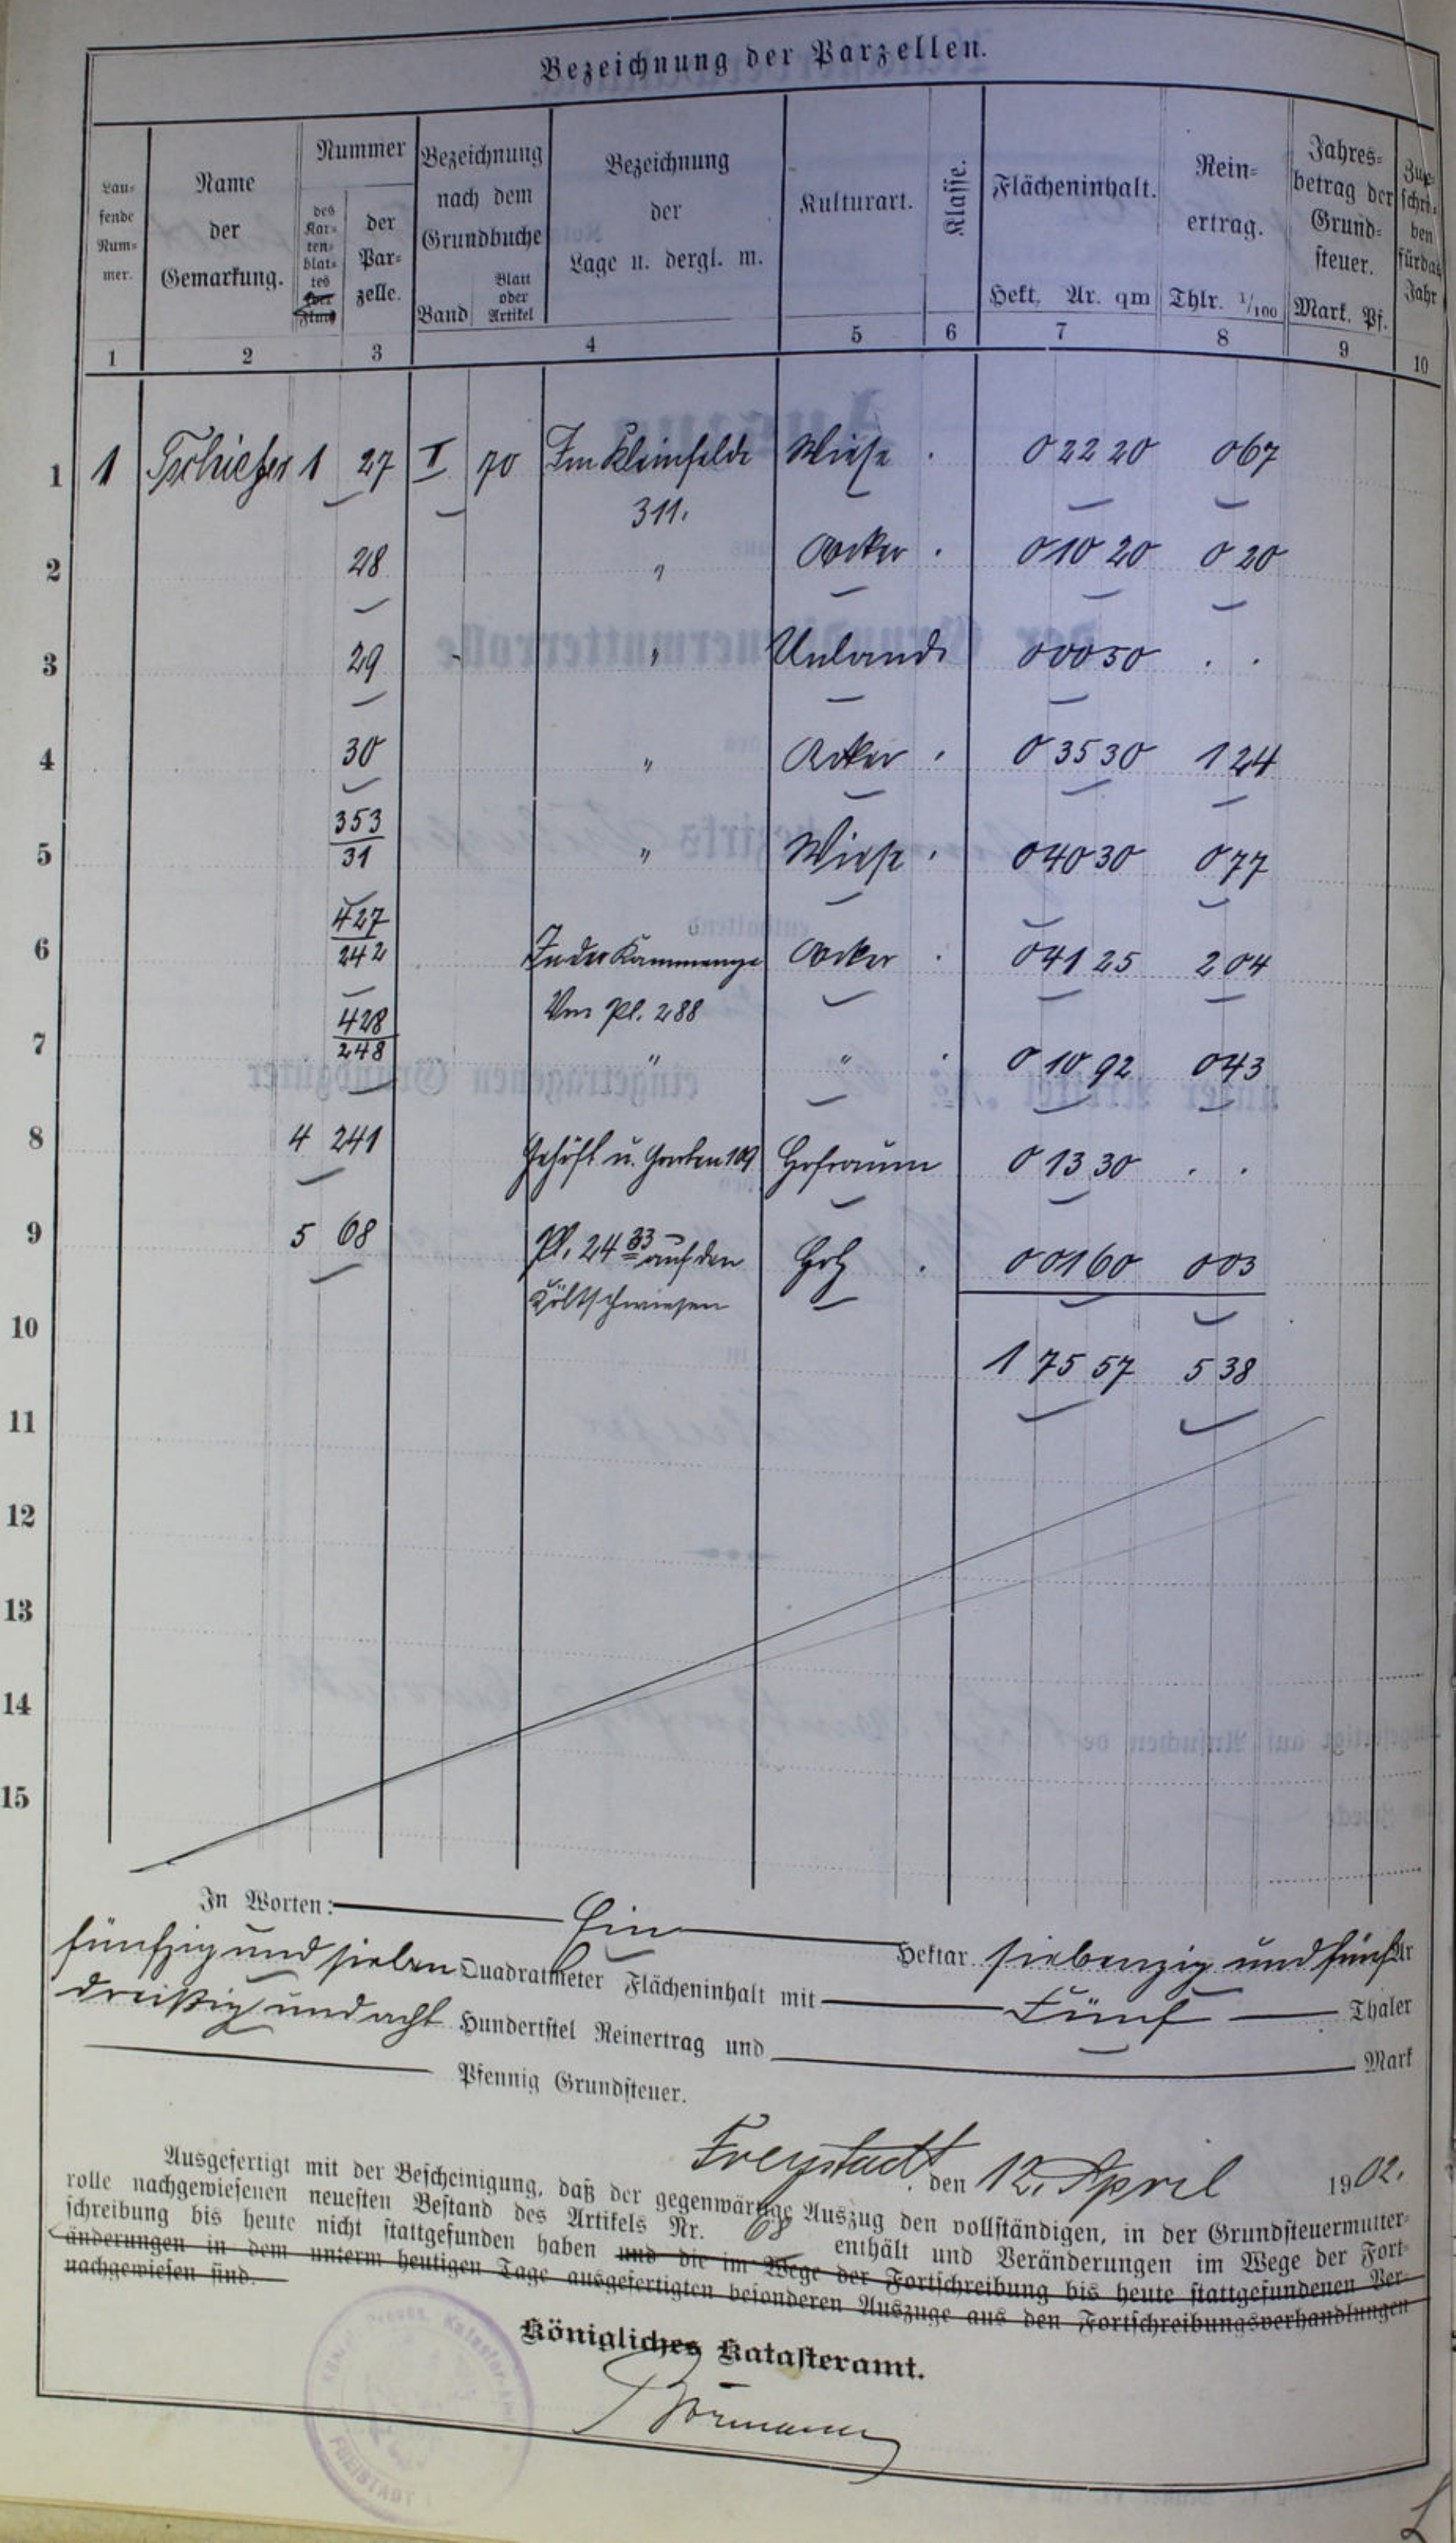 Bezeichnung der Parzellen.
Lau=
fende
Num=
mer.
Name
der
Gemarkung.
Nummer
des
Kar=
ten=
blat=
tes
der
Par=
zelle.
Bezeichnung
nach dem
Grundbuche
Band
Blatt
oder
Artikel
Bezeichnung
der
Lage u. dergl. m.
Kulturart.
Klasse.
Flächeninhalt.
Hekt. Ar. qm
Rein=
ertrag.
Thlr. 1/100
Jahres=
betrag der
Grund=
steuer.
Mark. Pf.
Zuge=
schrie=
ben
für das
Jahr
1 2 3 4 5 6 7 8 9 10
1 1 Tschiefer 1 27 I 70 Im Kleinfelde Wiese . 0 22 20 0 67
311.
2 28 " Acker . 0 10 20 0 20
3 29 " Unland 0 00 50 . .
4 30 " Acker . 0 35 30 1 24
5 353/31 " Wiese . 0 40 30 0 77
6 427/242 In der Acker . 0 41 25 2 04
Vm Pl. 288
7 428/248 " " . 0 10 92 0 43
8 4 241 Gehöft u. Garten 109 Hofraum 0 13 30 . .
9 5 68 Pl. 24 33 auf den Holz . 0 01 60 0 03
10 1 75 57 5 38
11
12
13
14
15
In Worten: Ein Hektar siebenzig und fünf Ar
fünfzig und sieben Quadratmeter Flächeninhalt mit Fünf Thaler
dreißig und acht Hundertstel Reinertrag und Mark
Pfennig Grundsteuer.
Freystadt, den 12. April 1902.
Ausgefertigt mit der Bescheinigung, daß der gegenwärtige Auszug den vollständigen, in der Grundsteuermutter=
rolle nachgewiesenen neuesten Bestand des Artikels Nr. 68 enthält und Veränderungen im Wege der Fort=
schreibung bis heute nicht stattgefunden haben und die im Wege der Fortschreibung bis heute stattgefundenen Ver=
änderungen in dem unterm heutigen Tage ausgefertigten besonderen Auszuge aus den Fortschreibungsverhandlungen
nachgewiesen sind.
Königliches Katasteramt.
Königl. Preuss. Kataster-Amt
FREISTADT